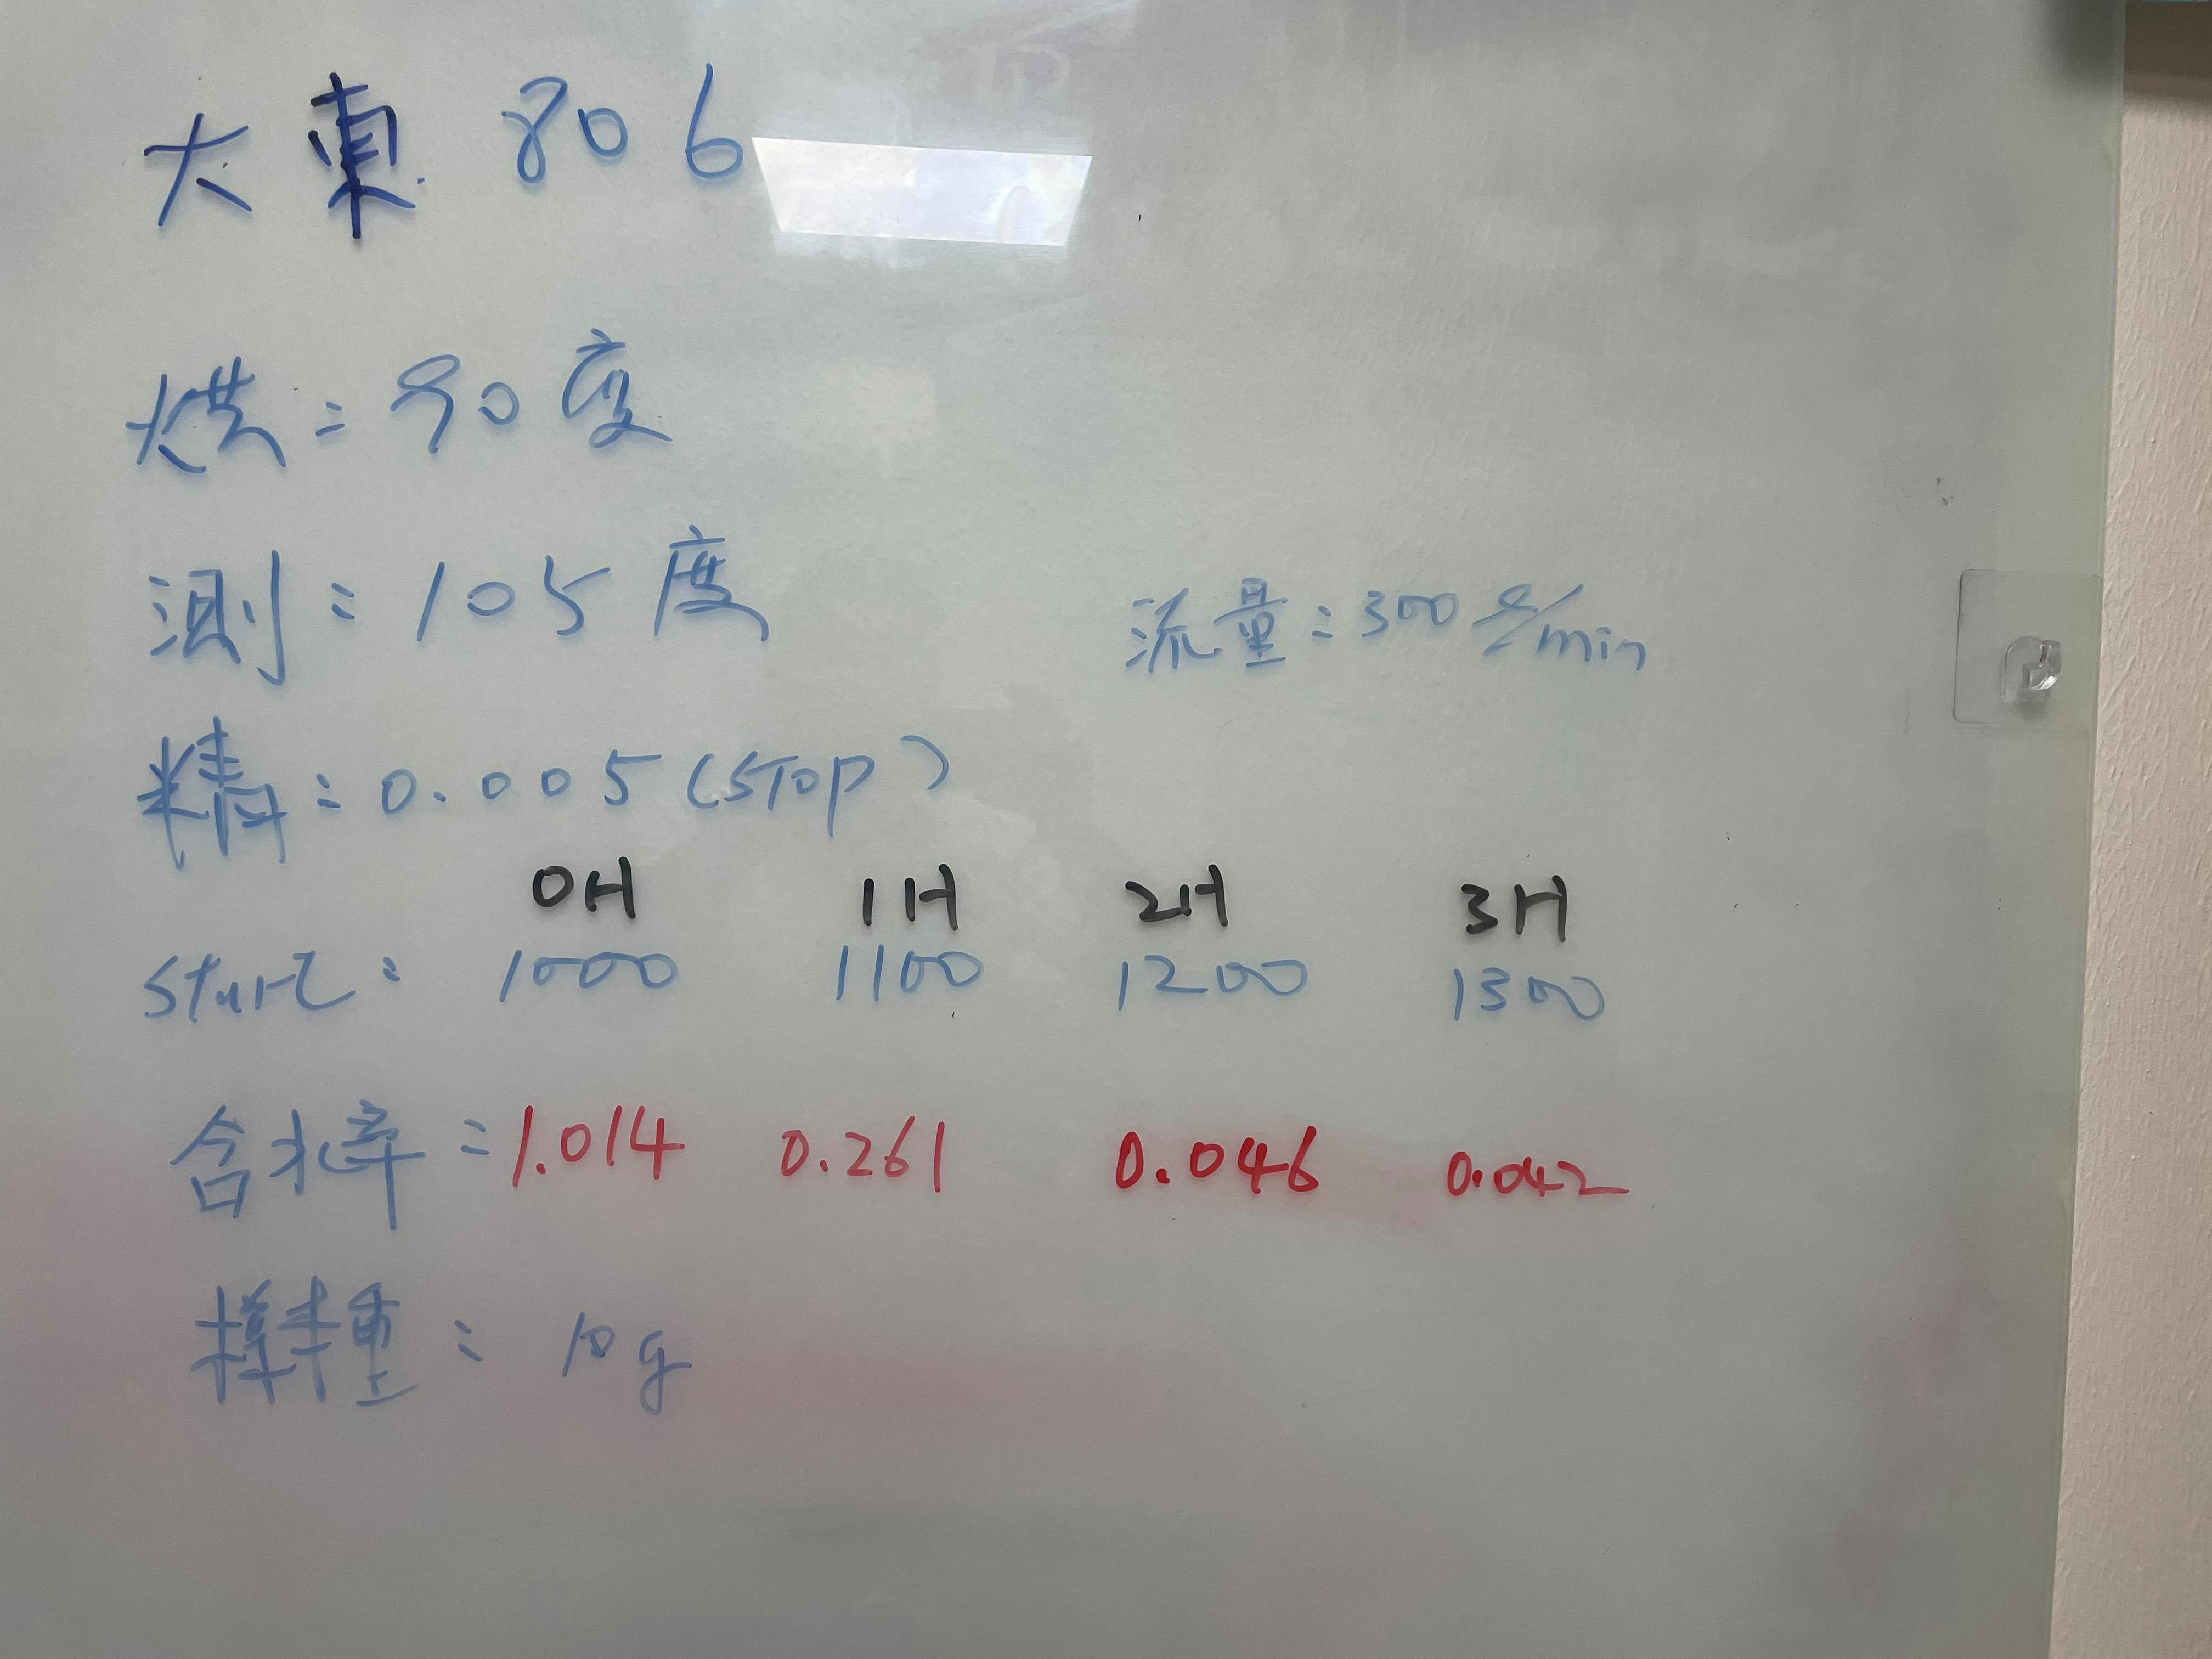 大東 806
烘：90度
測：105度
流量：300 ℓ/min
精：0.005 (STOP)
0H 1H 2H 3H
start： 1000 1100 1200 1300
含水率：1.014 0.261 0.046 0.042
樣種：10g